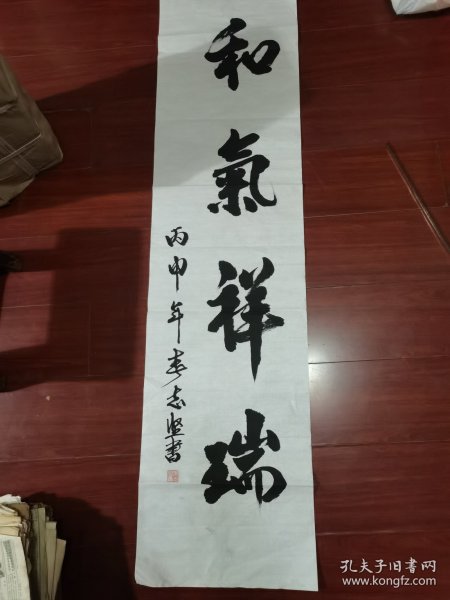 和氣祥瑞
丙申年春志堅書
孔夫子旧书网
www.kongfz.com